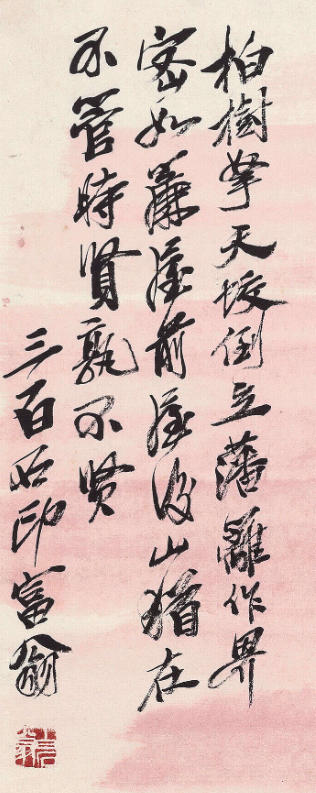 柏樹擎天倒立藩籬作界
密如簾屋前屋後山猶在
不管時賢孰不賢
三百石印富翁